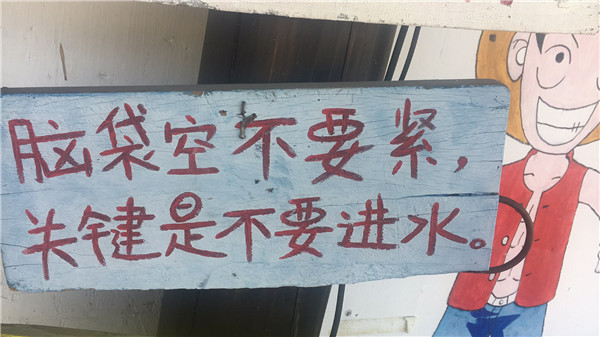 脑袋空不要紧，
关键是不要进水。